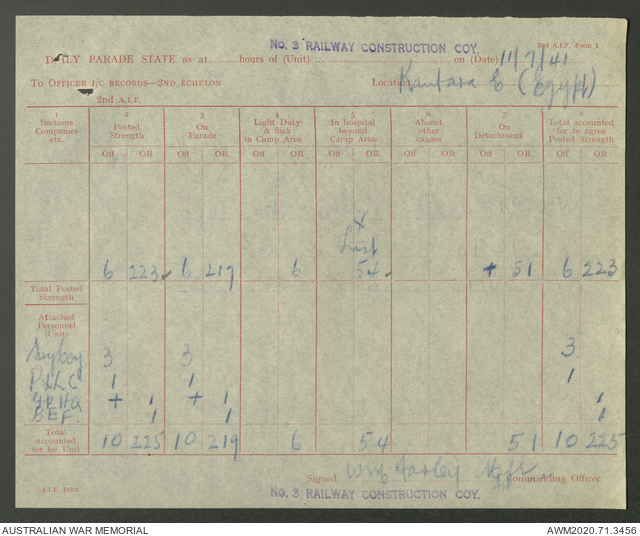 No. 3 RAILWAY CONSTRUCTION COY. 2nd A.I.F. Form 1
DAILY PARADE STATE as at hours of (Unit) on (Date) 11/7/41
TO OFFICER I/C RECORDS—2ND ECHELON Location Kantara E (Egypt)
2ND A.I.F.
1 2 3 4 5 6 7 8
Sections Companies etc. Posted Strength On Parade Light Duty & Sick in Camp Area In hospital beyond Camp Area Absent other causes On Detachment Total accounted for to agree Posted Strength
Off OR Off OR Off OR Off OR Off OR Off OR Off OR
x
List
6 223 6 217 6 54 + 51 6 223
Total Posted Strength
Attached Personnel (Unit)
3 3 3
1 1 1
+ 1 + 1 1
1 1 1
Total accounted for by Unit 10 225 10 219 6 54 51 10 225
Signed Commanding Officer
A.I.F. Print No. 3 RAILWAY CONSTRUCTION COY.
AUSTRALIAN WAR MEMORIAL AWM2020.71.3456